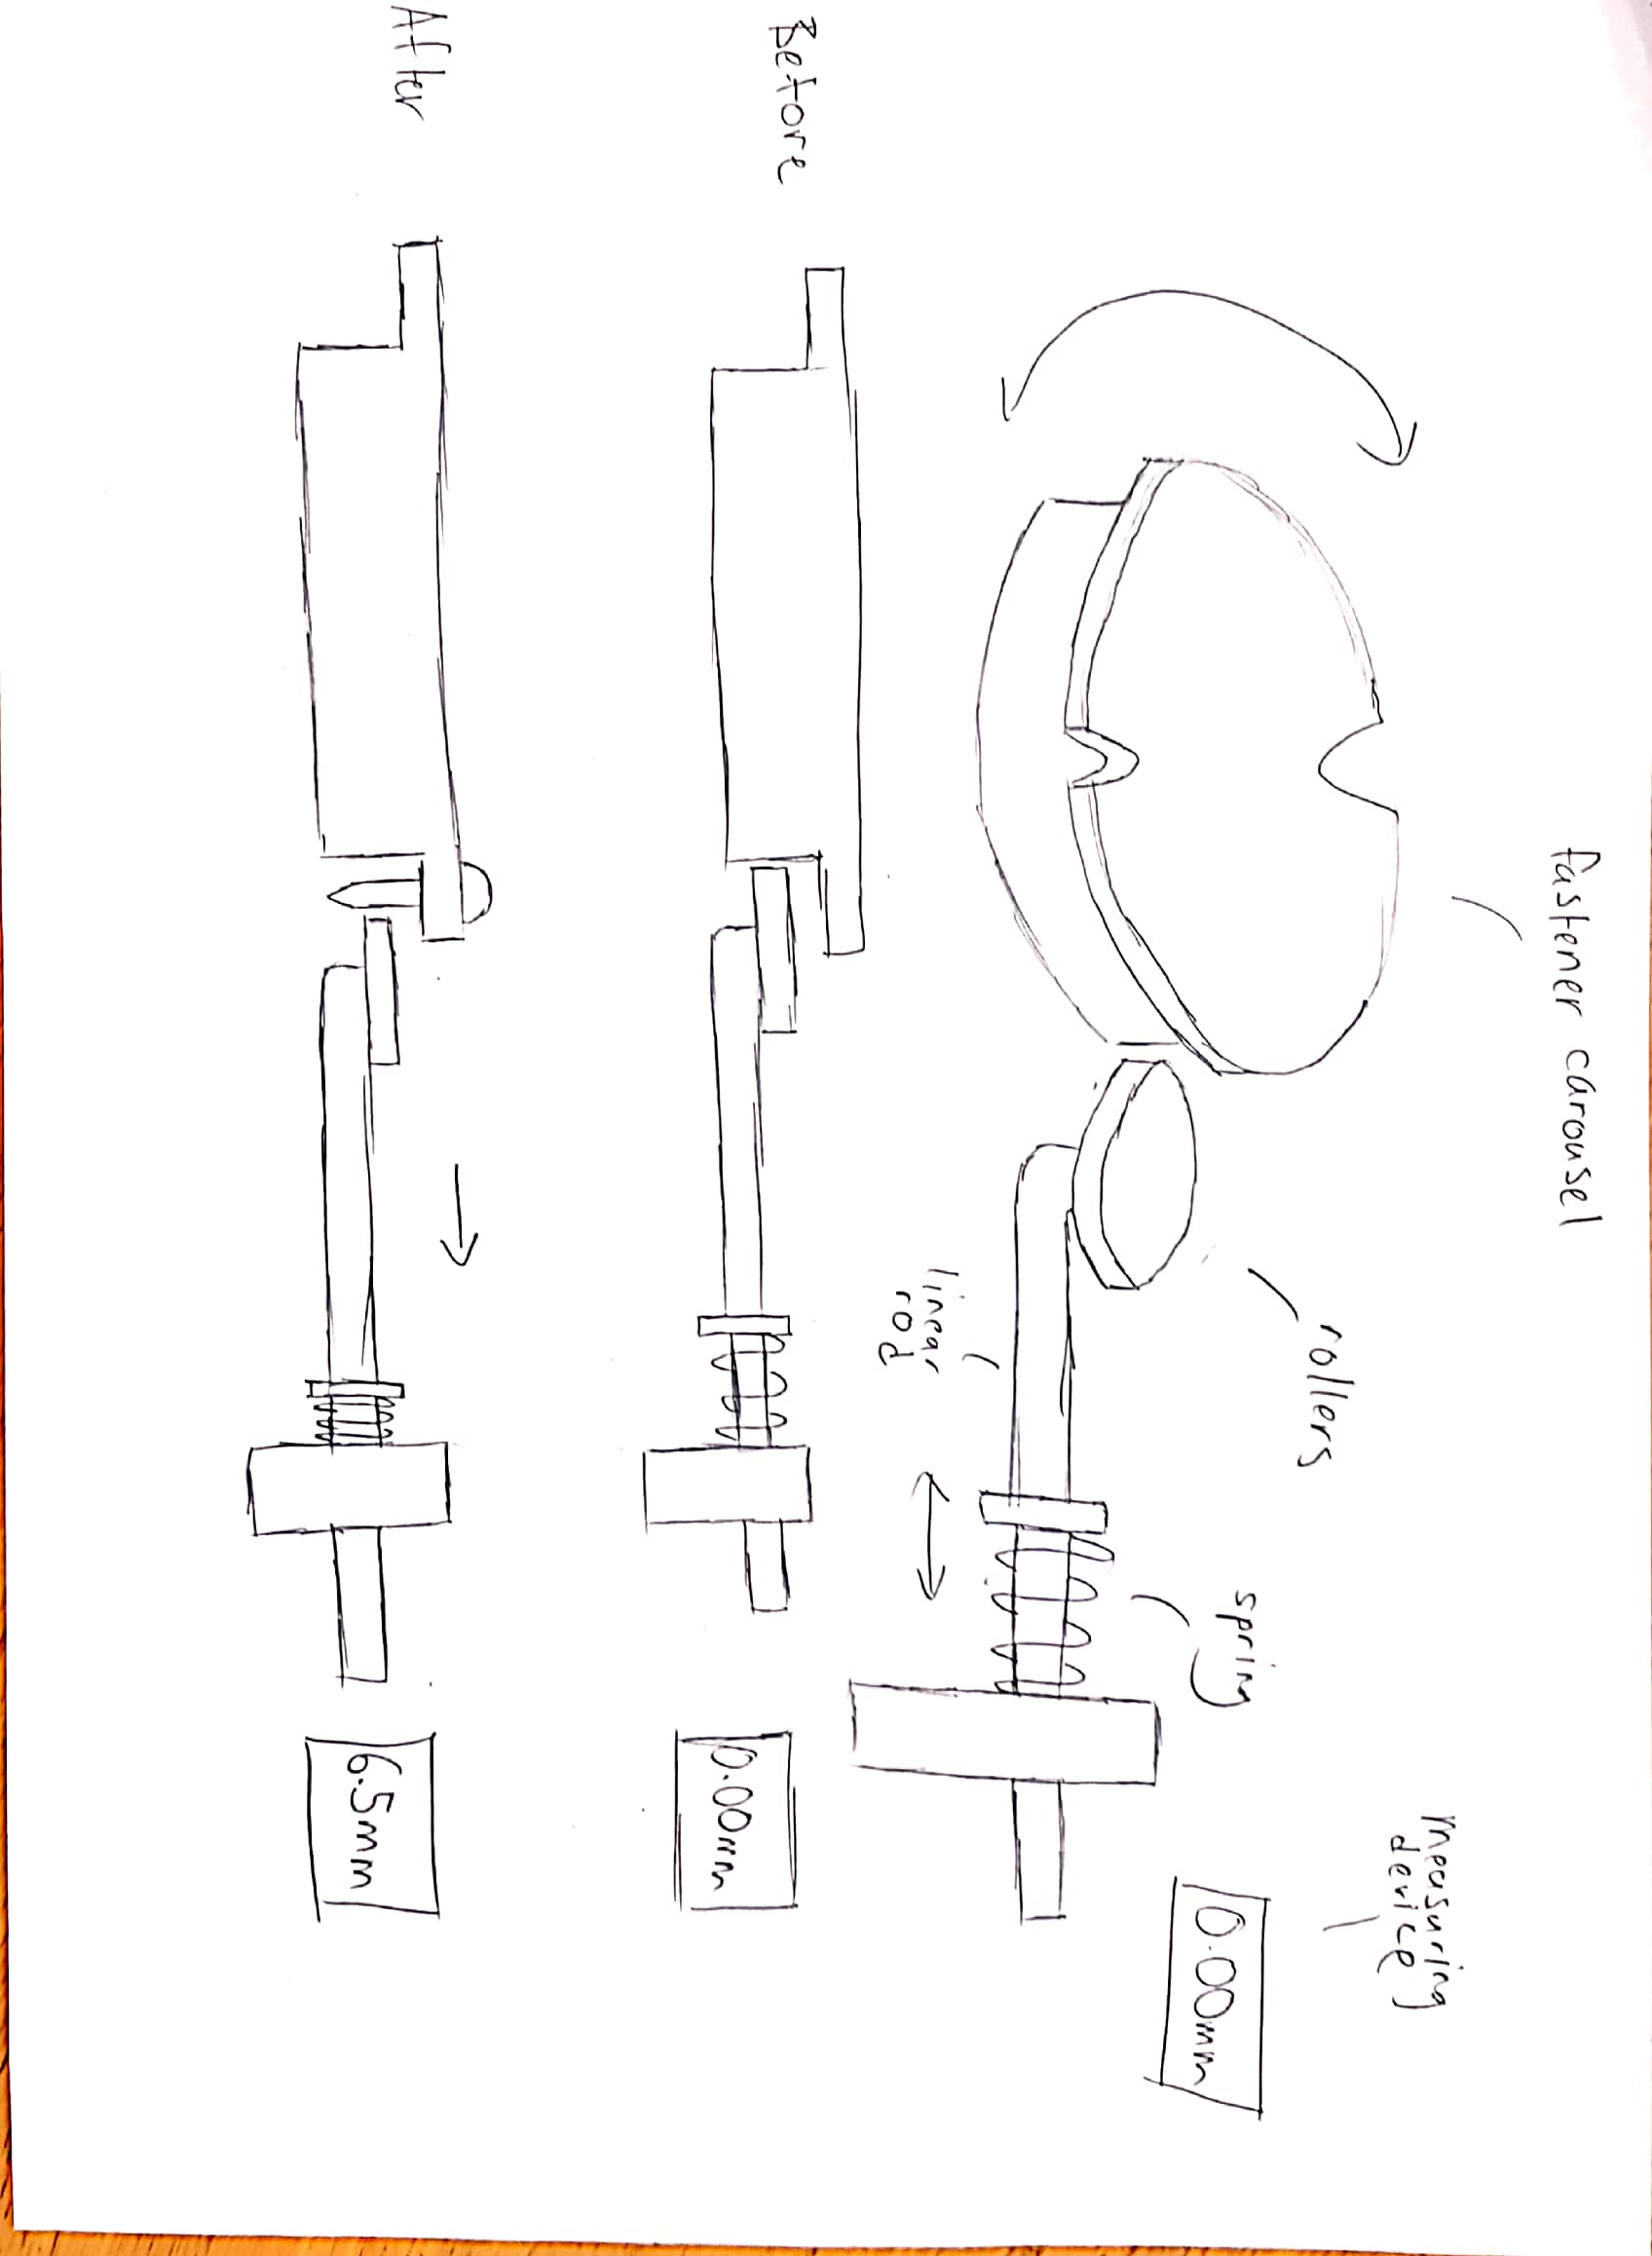 fastener carousel
measuring
device
rollers
spring
0.00mm
linear
rod
Before
0.00mm
After
6.5mm